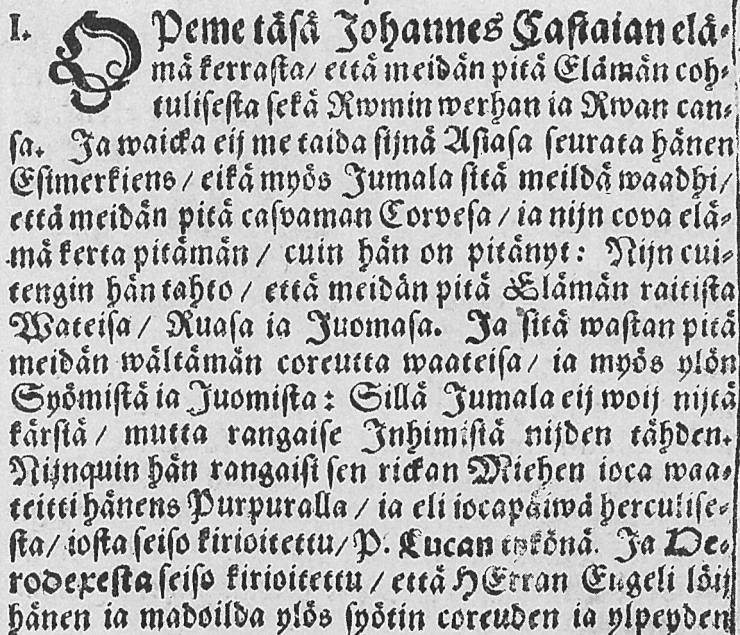 I. OPeme täsä Johannes Castaian elä-
mä kerrasta/ että meidän pitä Elämän coh-
tulisesta sekä Rwmin werhan ia Rwan can-
sa. Ja waicka eij me taida sijnä Asiasa seurata hänen
Esimerkiens/ eikä myös Jumala sitä meildä waadhi/
että meidän pitä casvaman Corvesa/ ia nijn cova elä-
mä kerta pitämän/ cuin hän on pitänyt: Nijn cui-
tengin hän tahto/ että meidän pitä Elämän raitista
Wateisa/ Ruasa ia Juomasa. Ja sitä wastan pitä
meidän wältämän coreutta waateisa/ ia myös ylön
Syömistä ia Juomista: Sillä Jumala eij woij nijtä
kärsiä/ mutta rangaise Inhimistä nijden tähden.
Nijnquin hän rangaisi sen rickan Miehen ioca waa-
teitti hänens Purpuralla/ ia eli iocapäiwä herculise-
sta/ iosta seiso kirioitettu/ P. Lucan tykönä. Ja He-
rodexesta seiso kirioitettu/ että HErran Engeli löij
hänen ia madoilda ylös syötin coreuden ia ylpeyden